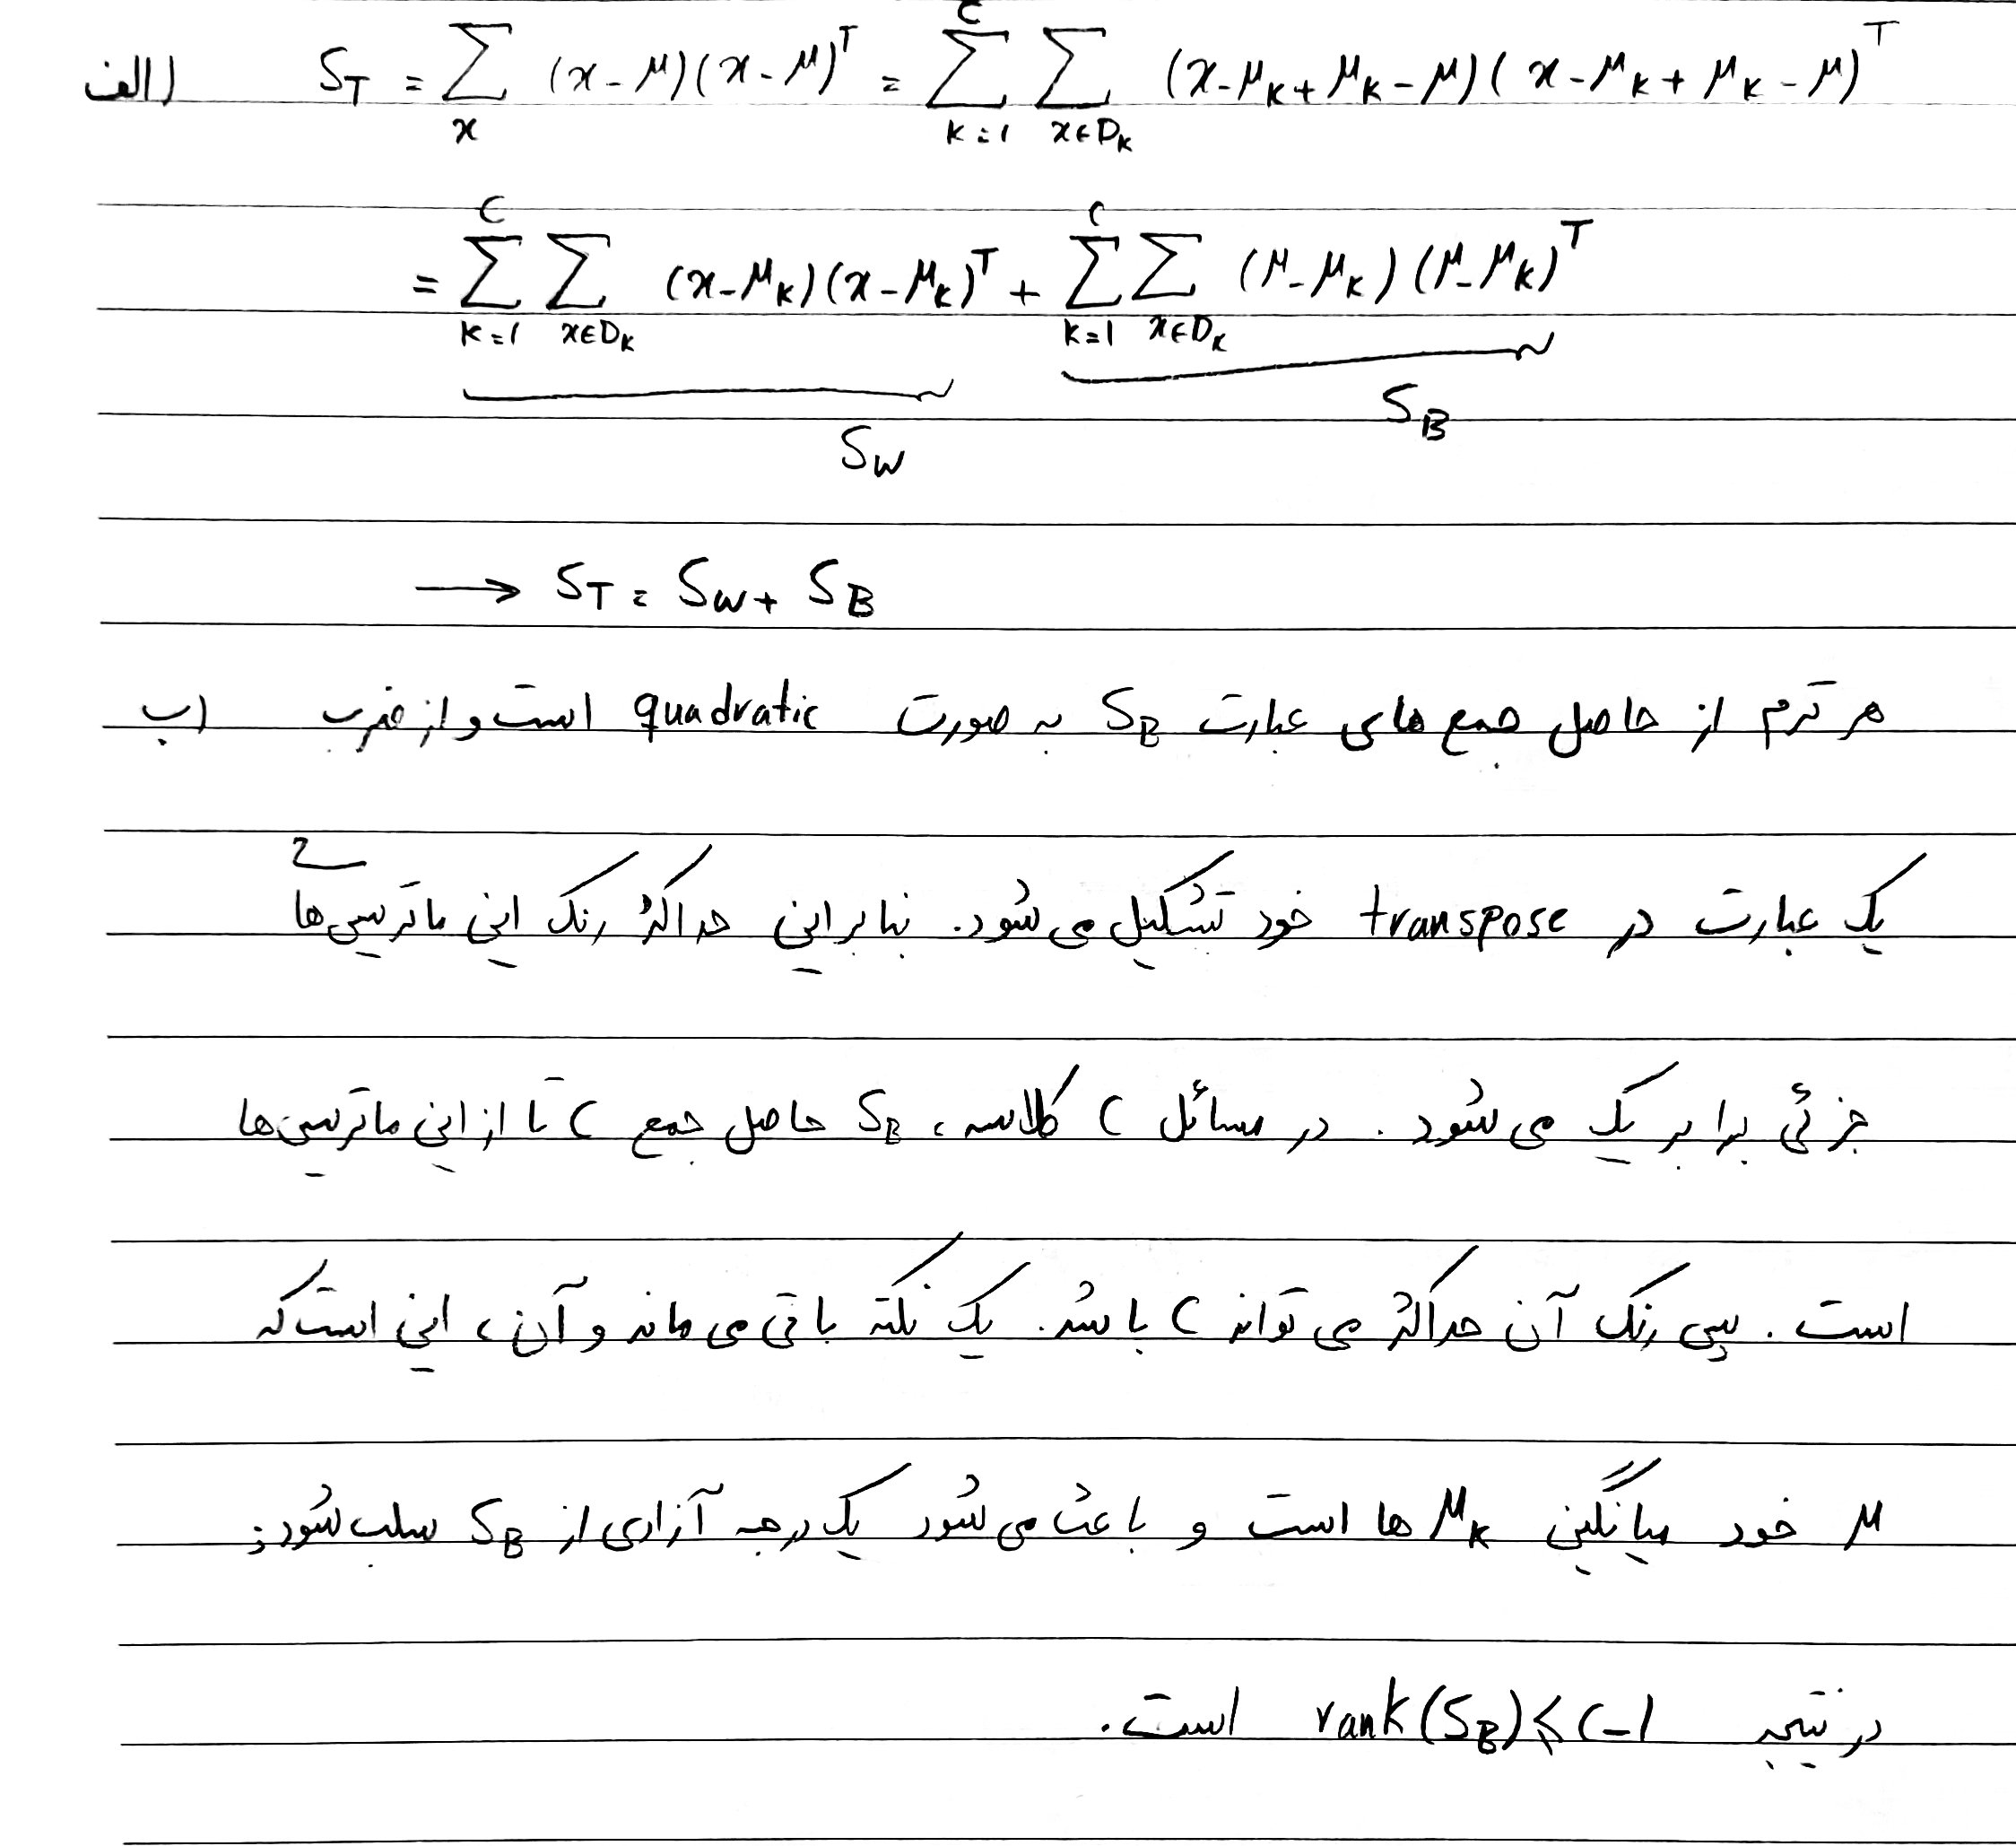 الف) S_T = Σ_x (x-μ)(x-μ)^T = Σ_{k=1}^{C} Σ_{x∈D_k} (x-μ_k+μ_k-μ)(x-μ_k+μ_k-μ)^T
= Σ_{k=1}^{C} Σ_{x∈D_k} (x-μ_k)(x-μ_k)^T + Σ_{k=1}^{C} Σ_{x∈D_k} (μ-μ_k)(μ-μ_k)^T
S_W S_B
→ S_T = S_W + S_B
ب) هر ترم از حاصل جمع های عبارت S_B به صورت quadratic است و از ضرب
یک عبارت در transpose خود تشکیل می شود. بنابراین حداکثر رنک این ماتریس ها
جزئی برابر یک می شود. در مسائل C کلاسه، S_B حاصل جمع C تا از این ماتریس ها
است. پس رنک آن حداکثر می تواند C باشد. یک نکته باقی می ماند و آن، این است که
μ خود میانگین μ_k ها است و باعث می شود یک درجه آزادی از S_B سلب شود؛
در نتیجه rank(S_B) ⩽ C-1 است.